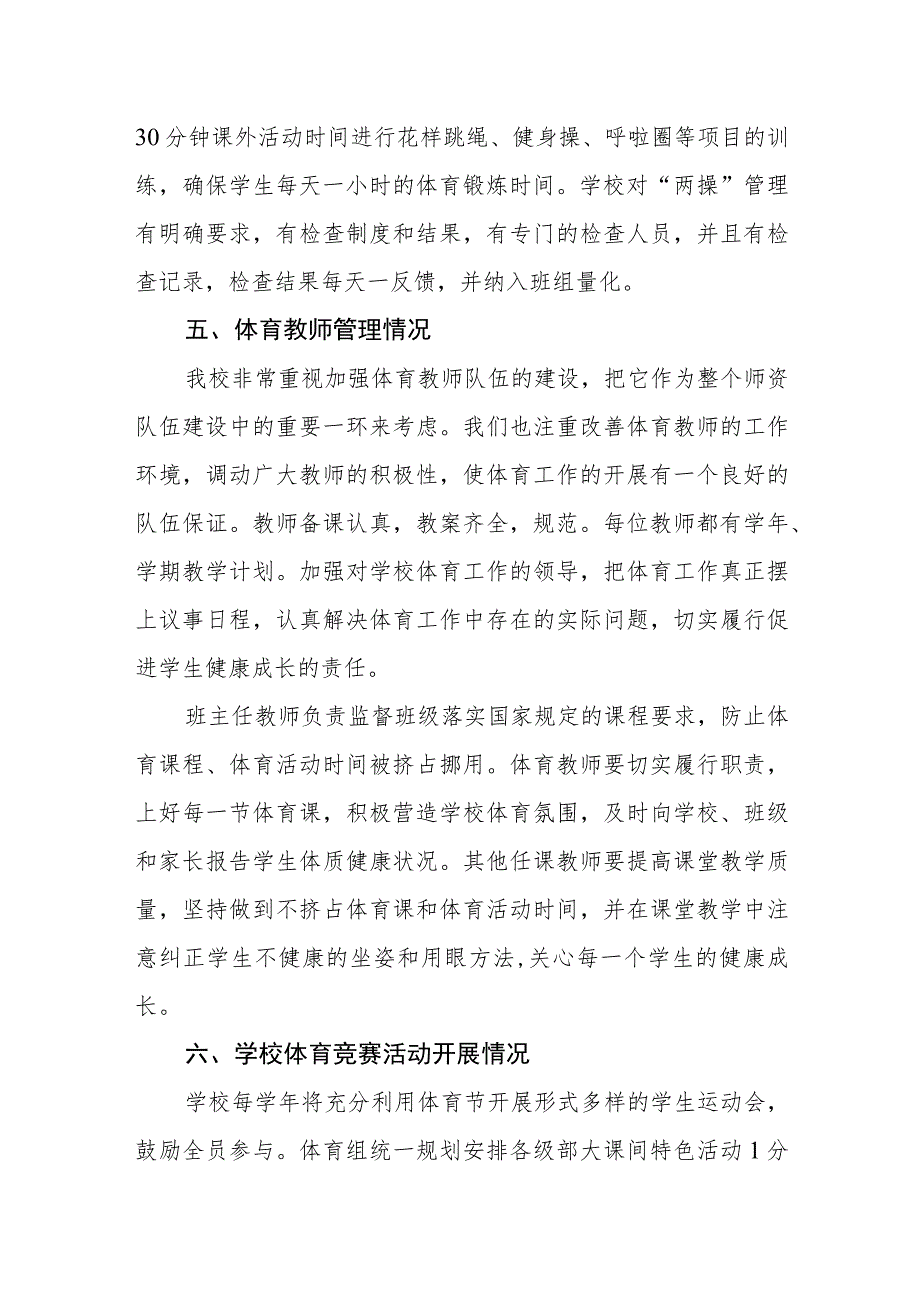 30分钟课外活动时间进行花样跳绳、健身操、呼啦圈等项目的训
练，确保学生每天一小时的体育锻炼时间。学校对“两操”管理
有明确要求，有检查制度和结果，有专门的检查人员，并且有检
查记录，检查结果每天一反馈，并纳入班组量化。
五、体育教师管理情况
我校非常重视加强体育教师队伍的建设，把它作为整个师资
队伍建设中的重要一环来考虑。我们也注重改善体育教师的工作
环境，调动广大教师的积极性，使体育工作的开展有一个良好的
队伍保证。教师备课认真，教案齐全，规范。每位教师都有学年、
学期教学计划。加强对学校体育工作的领导，把体育工作真正摆
上议事日程，认真解决体育工作中存在的实际问题，切实履行促
进学生健康成长的责任。
班主任教师负责监督班级落实国家规定的课程要求，防止体
育课程、体育活动时间被挤占挪用。体育教师要切实履行职责，
上好每一节体育课，积极营造学校体育氛围，及时向学校、班级
和家长报告学生体质健康状况。其他任课教师要提高课堂教学质
量，坚持做到不挤占体育课和体育活动时间，并在课堂教学中注
意纠正学生不健康的坐姿和用眼方法,关心每一个学生的健康成
长。
六、学校体育竞赛活动开展情况
学校每学年将充分利用体育节开展形式多样的学生运动会，
鼓励全员参与。体育组统一规划安排各级部大课间特色活动1分